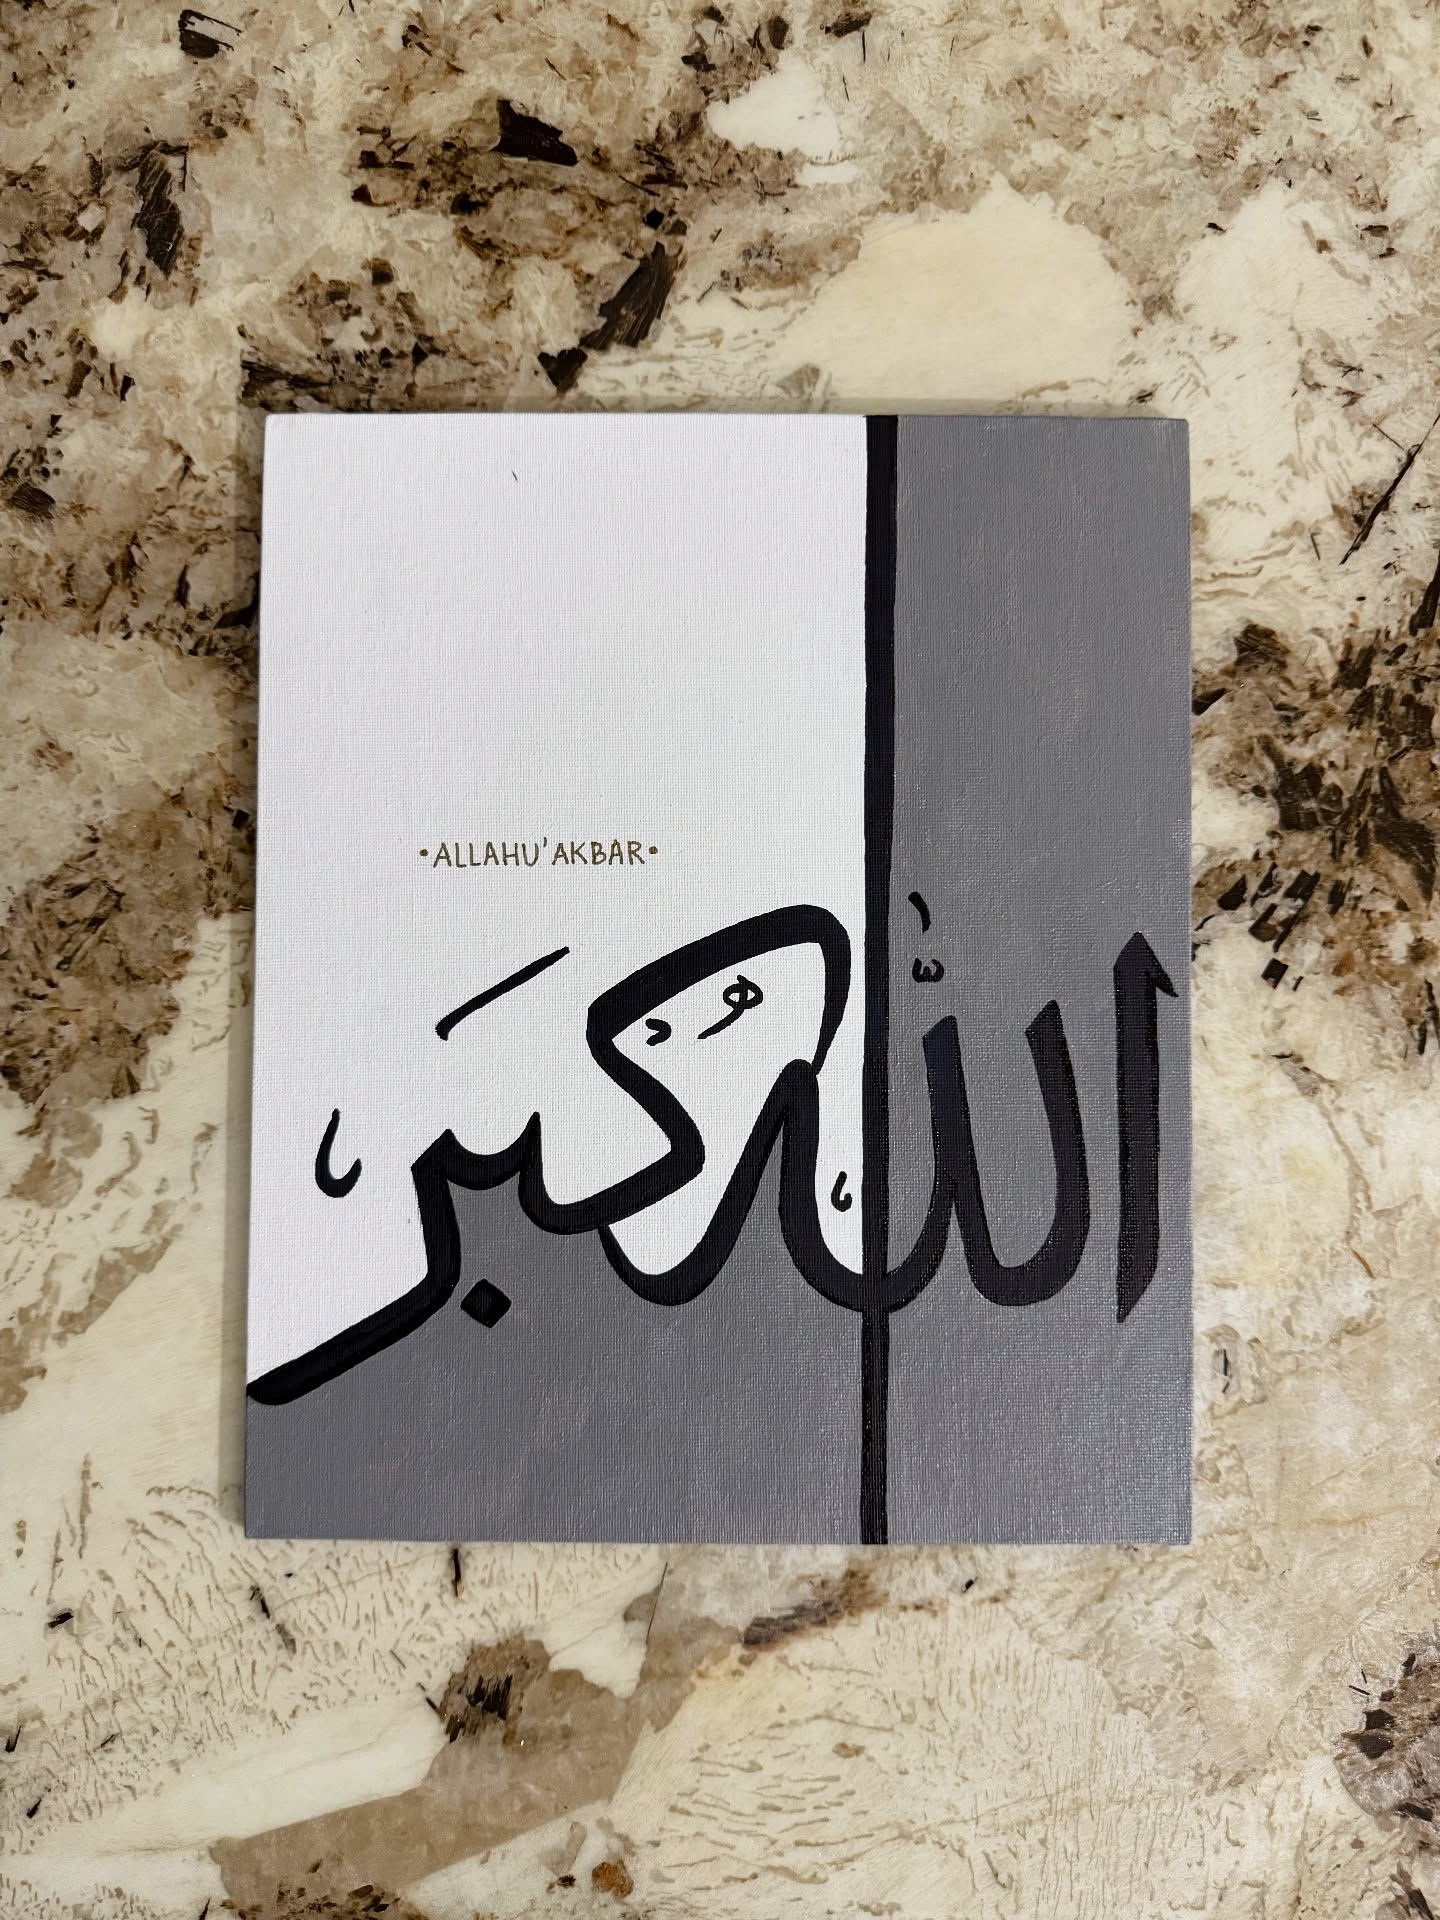 •ALLAHU'AKBAR•
الله أكبر